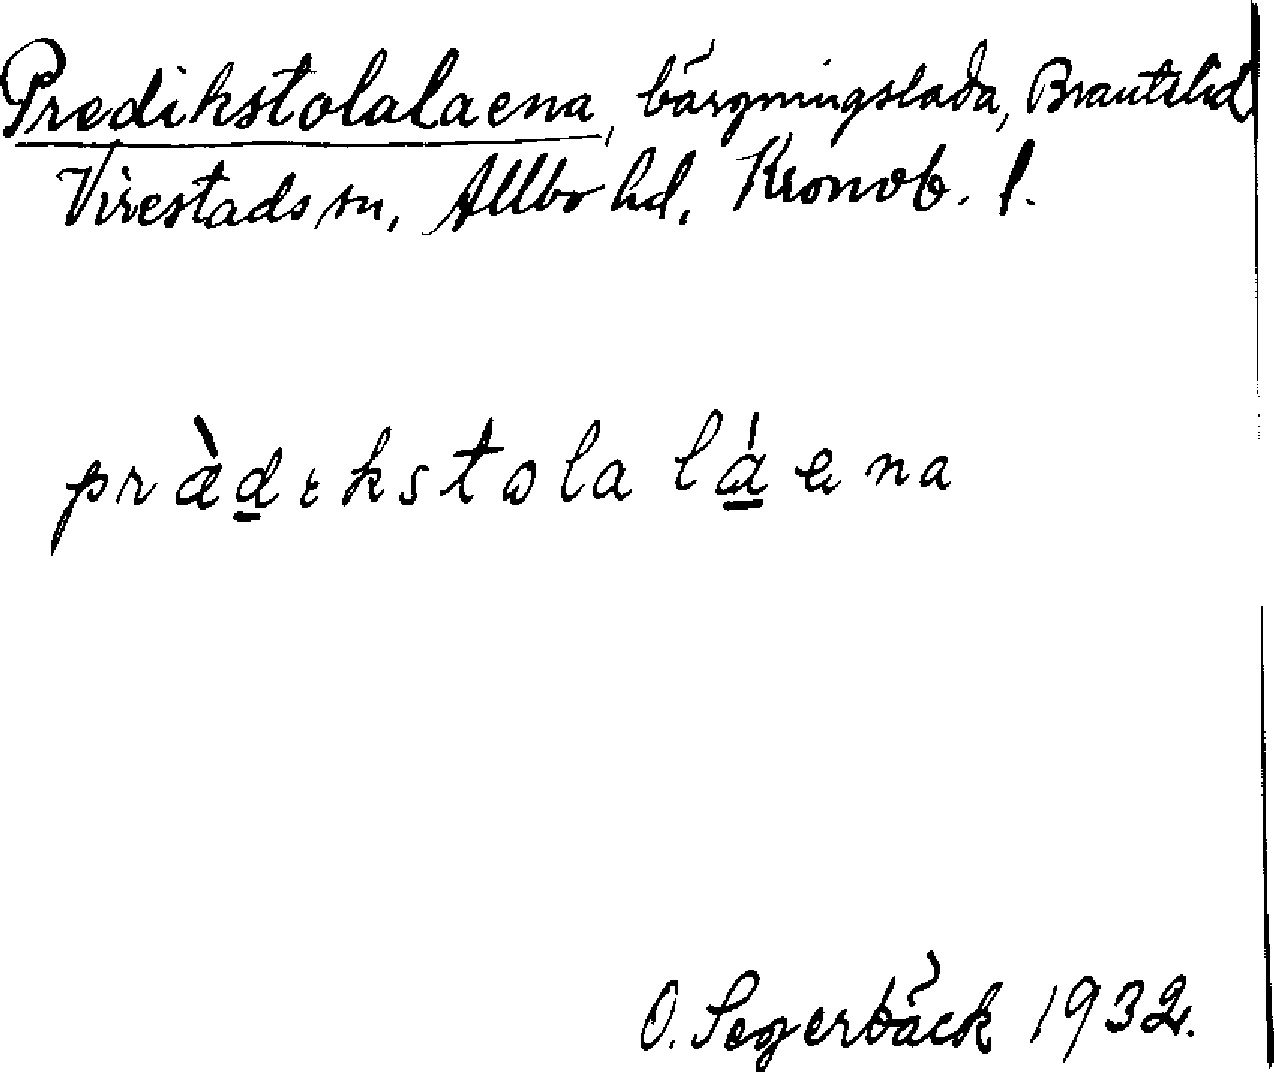 Predikstolalaena, bärgningslada, Brantelid
Virestads sn, Allbo hd. Kronob. l.
prædıkstola laena
O. Segerbäck 1932.